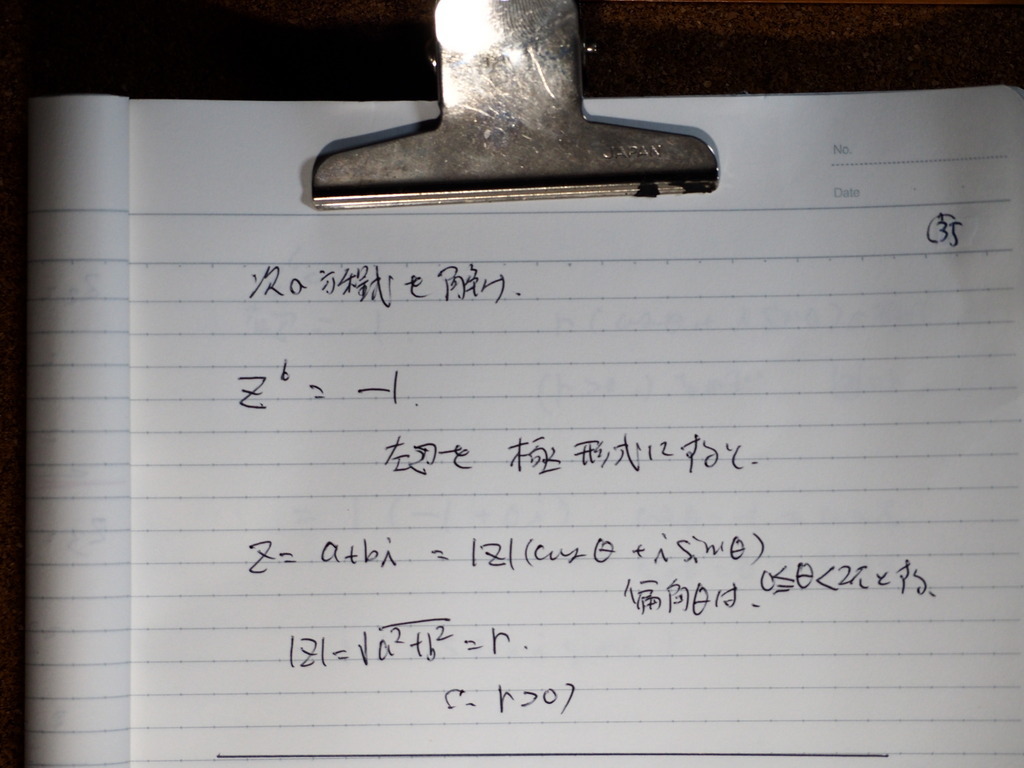 JAPAN
No.
Date
次の方程式を解け.
z⁶ = -1.
左辺を 極形式にすると.
z = a+bi = |z|(cosθ + i sinθ)
偏角θは、0≦θ<2πとする、
|z|=√a²+b² = r.
(∵ r>0)